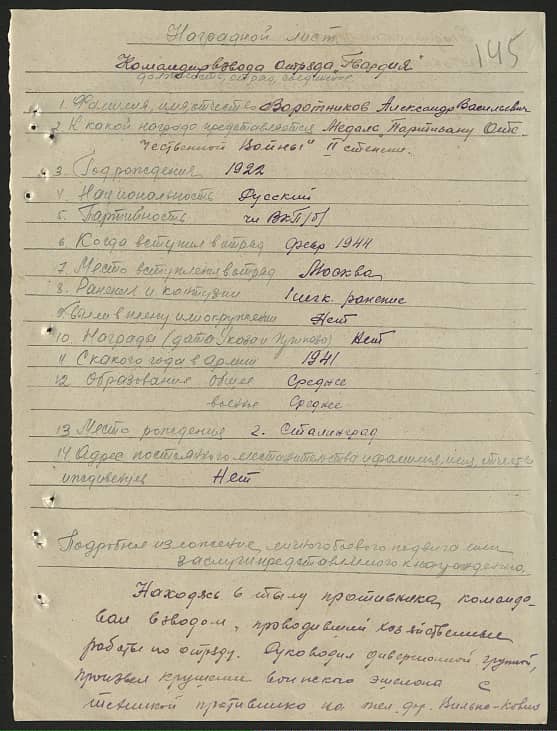 Наградной лист
145
Командир взвода отряда "Гвардия"
должность, отряд, соединение
1. Фамилия, имя, отчество Воротников Александр Васильевич
2. К какой награде представляется Медаль Партизану Оте-
чественной войны" II степени.
3. Год рождения 1922
4. Национальность Русский
5. Партийность чл ВКП/б/
6. Когда вступил в отряд февр 1944
7. Место вступления в отряд Москва
8. Ранения и контузии 1 легк. ранение
Были в плену или окружении Нет
10. Награды (дата Указа и Приказа) Нет
11 С какого года в армии 1941
12 Образование общее Среднее
военное Среднее
13 Место рождения г. Сталинград
14 Адрес постоянного местожительства и фамилия, имя,
иждивенцев Нет
Подробное изложение личного боевого подвига или
заслуги представляемого к награждению.
Находясь в тылу противника, командо-
вал взводом, проводивший хозяйственные
работы по отряду. Руководил диверсионной группой,
произвел крушение воинского эшелона с
техникой противника на жел. др. Вильно-Ковно